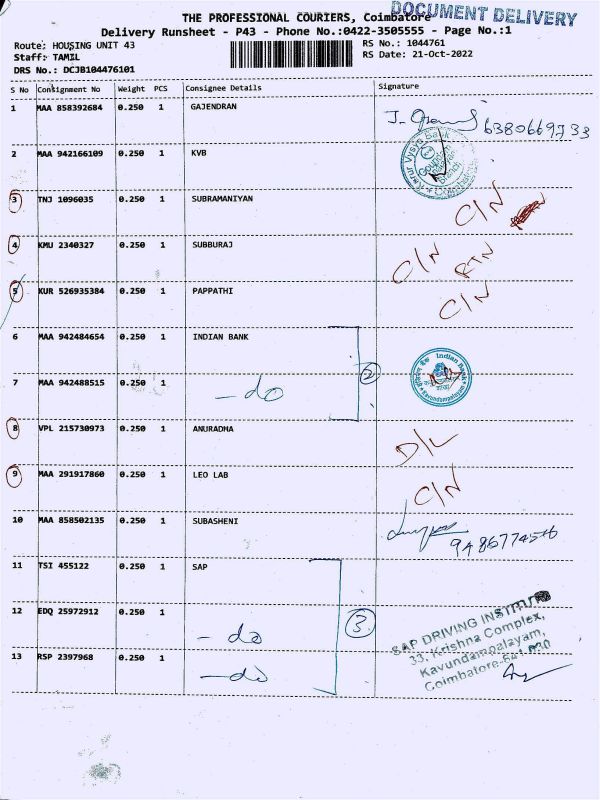 THE PROFESSIONAL COURIERS, Coimbatore
DOCUMENT DELIVERY
Delivery Runsheet - P43 - Phone No.:0422-3505555 - Page No.:1
Route: HOUSING UNIT 43
RS No.: 1044761
Staff: TAMIL
RS Date: 21-Oct-2022
DRS No.: DCJB104476101
S No Consignment No Weight PCS Consignee Details Signature
1 MAA 858392684 0.250 1 GAJENDRAN
6380669733
2 MAA 942166109 0.250 1 KVB
Karur Vysya Bank
Coimbatore
3 TNJ 1096035 0.250 1 SUBRAMANIYAN C/N
4 KMU 2340327 0.250 1 SUBBURAJ C/N
5 KUR 526935384 0.250 1 PAPPATHI C/N
6 MAA 942484654 0.250 1 INDIAN BANK
2
Indian Bank
Kavundampalayam
7 MAA 942488515 0.250 1 -do
8 VPL 215730973 0.250 1 ANURADHA D/L
9 MAA 291917860 0.250 1 LEO LAB C/N
10 MAA 858502135 0.250 1 SUBASHENI
9486774546
11 TSI 455122 0.250 1 SAP
12 EDQ 25972912 0.250 1 -do
3
13 RSP 2397968 0.250 1 -do
SAP DRIVING INSTITUTE
33, Krishna Complex,
Kavundampalayam,
Coimbatore-641 030